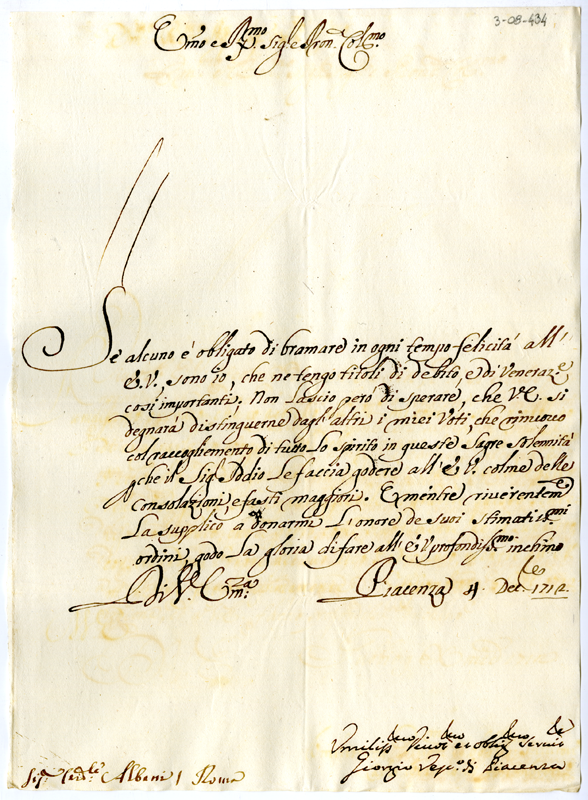 3-08-434
Em̃o e Rmo Sigre Pron Colmo
Se alcuno e' obligato di bramare in ogni tempo felicitá all'
E. V., sono io, che ne tengo titoli di debito, e di Veneraze
cosi importanti. Non lascio peró di sperare, che V. E. si
degnará distinguerne dagl'altri i miei Voti, che rinuovo
col raccoglimento di tutto lo spirito in queste Sagre Solennitá
che il Sigr Iddio le faccia godere all'E. V. colme delle
consolazioni e fasti maggiori. E mentre riverentemte
La supplico a donarmi l'onore de suoi stimatissmi
ordini, godo la gloria di fare all'E. V. profondissmo inchino
Di V. Emza
Piacenza 4. Dece 1712.
Umiliss Devot et obblig Servit
Giorgio Vesco di Piacenza
Sigr Cardle Albani / Roma